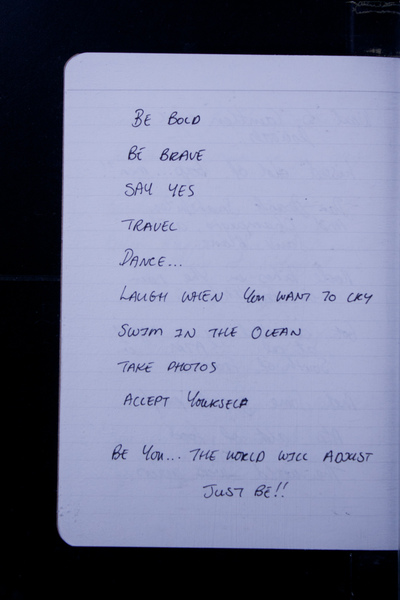 BE BOLD
BE BRAVE
SAY YES
TRAVEL
DANCE...
LAUGH WHEN YOU WANT TO CRY
SWIM IN THE OCEAN
TAKE PHOTOS
ACCEPT YOURSELF
BE YOU... THE WORLD WILL ADJUST
JUST BE!!